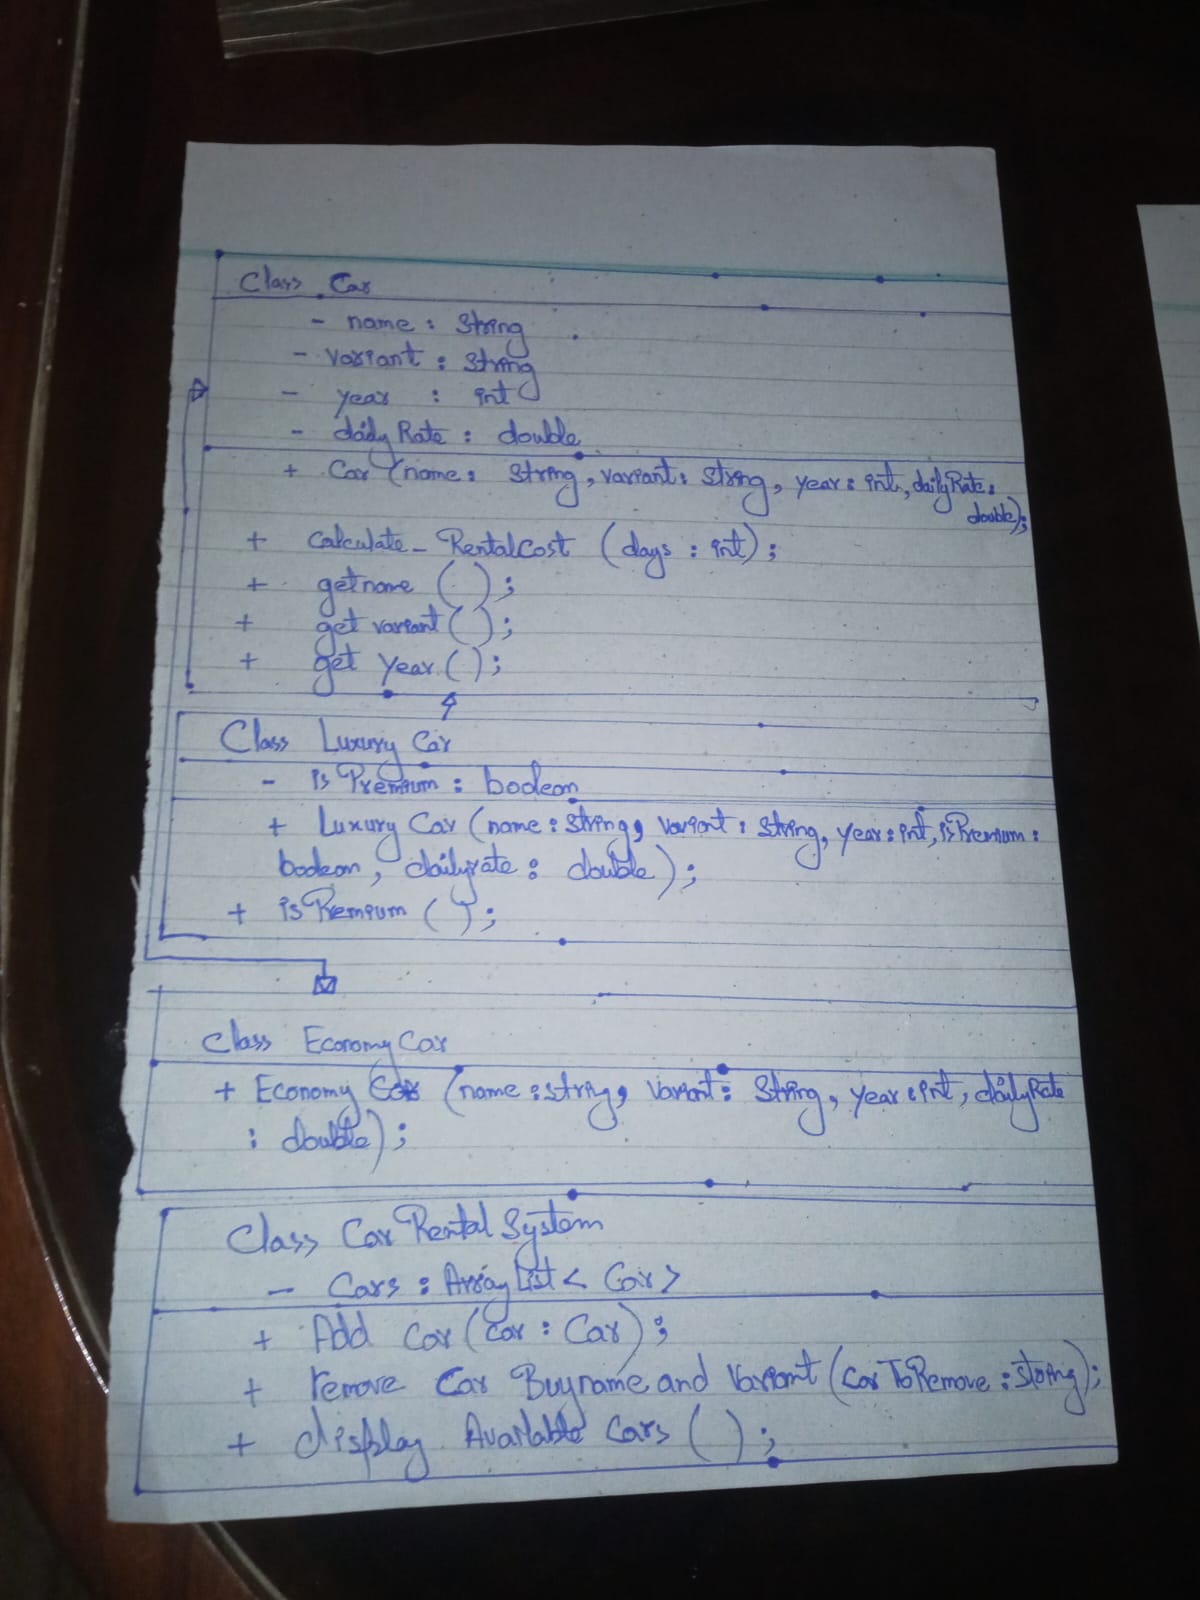 Class Car
- name : String
- variant : String
- year : int
- daily Rate : double
+ Car (name : String, variant : String, year : int, dailyRate :
double);
+ calculate_RentalCost (days : int);
+ getname ( );
+ get variant( );
+ get year ( );
Class Luxury Car
- is Premium : boolean
+ Luxury Car (name : String, variant : String, year : int, isPremium :
boolean, dailyrate : double);
+ is Premium ( );
Class Economy Car
+ Economy Car (name : string, variant : String, year : int, dailyRate
: double);
Class Car Rental System
- Cars : Array List < Car >
+ Add Car (Car : Car);
+ remove Car Buyname and Variant (Car To Remove : string);
+ display Available Cars ( );